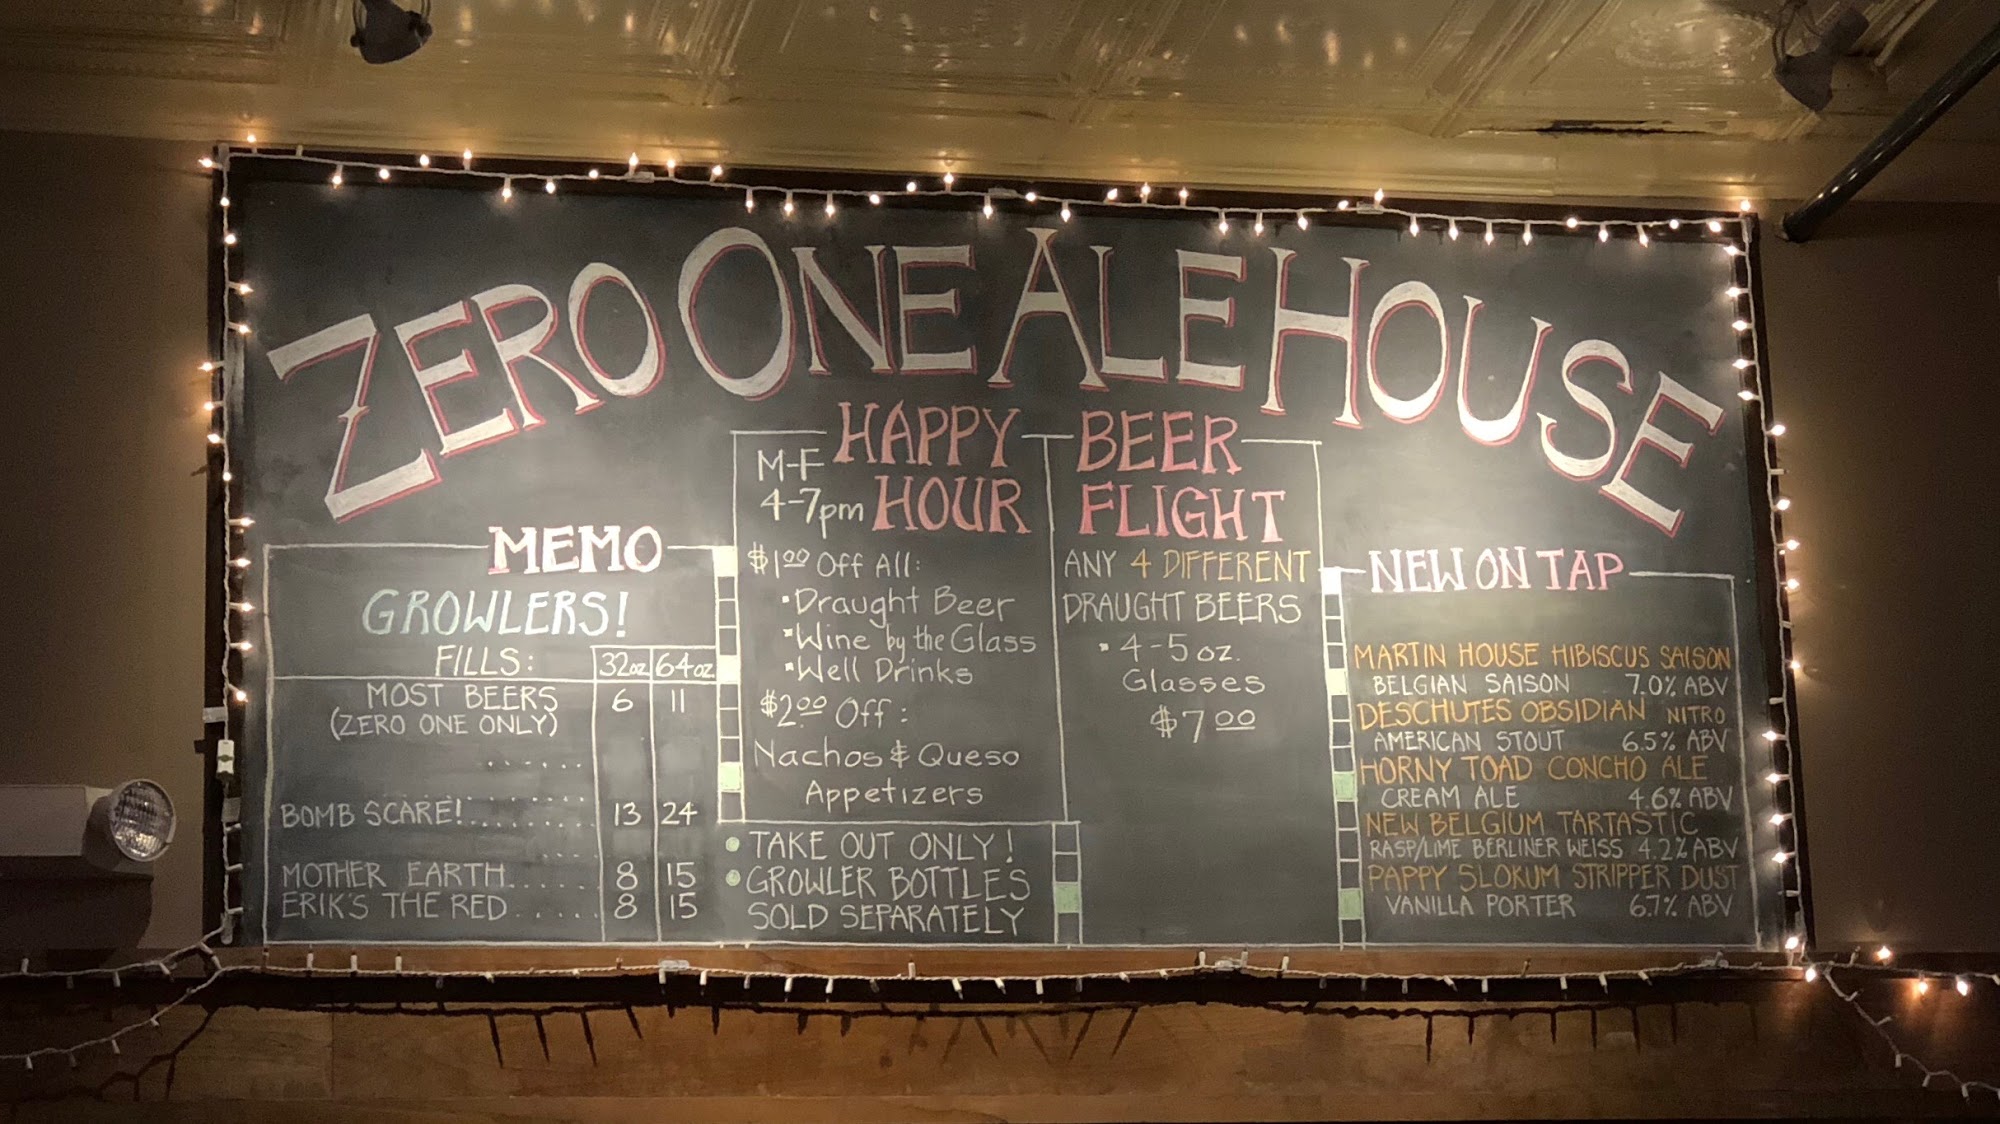 ZERO ONE ALE HOUSE
MEMO
GROWLERS!
FILLS: 32oz. 64oz.
MOST BEERS 6 11
(ZERO ONE ONLY)
......
........
BOMB SCARE!......... 13 24
MOTHER EARTH..... 8 15
ERIK'S THE RED ..... 8 15
HAPPY
M-F
4-7pm HOUR
$1.00 Off All:
• Draught Beer
• Wine by the Glass
• Well Drinks
$2.00 Off:
Nachos & Queso
Appetizers
• TAKE OUT ONLY!
• GROWLER BOTTLES
SOLD SEPARATELY
BEER
FLIGHT
ANY 4 DIFFERENT
DRAUGHT BEERS
• 4-5 oz.
Glasses
$7.00
NEW ON TAP
MARTIN HOUSE HIBISCUS SAISON
BELGIAN SAISON 7.0% ABV
DESCHUTES OBSIDIAN NITRO
AMERICAN STOUT 6.5% ABV
HORNY TOAD CONCHO ALE
CREAM ALE 4.6% ABV
NEW BELGIUM TARTASTIC
RASP/LIME BERLINER WEISS 4.2% ABV
PAPPY SLOKUM STRIPPER DUST
VANILLA PORTER 6.7% ABV